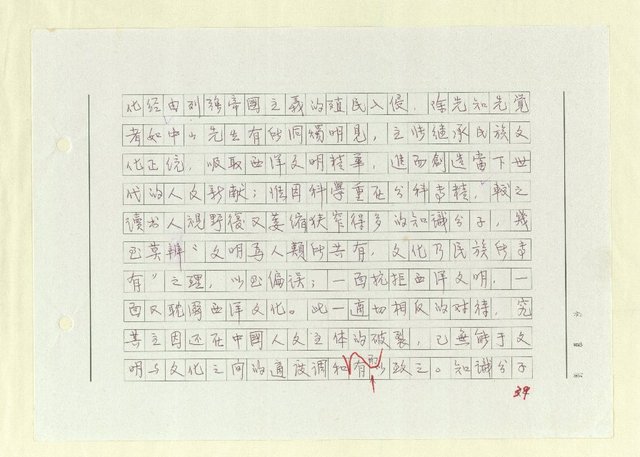 化經由列強帝國主義的殖民入侵，除先知先覺
者如中山先生有所洞燭明見，主涉继承民族文
化正統，吸取西洋文明精華，進而創造當下世
代的人文新献；惟因科學重在分科專精，較之
讀书人視野復又萎缩狹窄得多的知識分子，幾
至莫辨“文明爲人類所共有，文化乃民族所專
有”之理，以至偏误；一面抗拒西洋文明，一
面又耽溺西洋文化。此一適切相反的对待，究
其主因还在中國人文主体的破裂，已無能于文
明与文化之间的通设調和有所以致之。知識分子
39